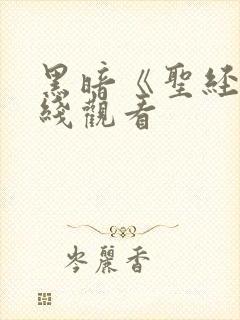 黑暗《聖経
綫觀看
岑麗香